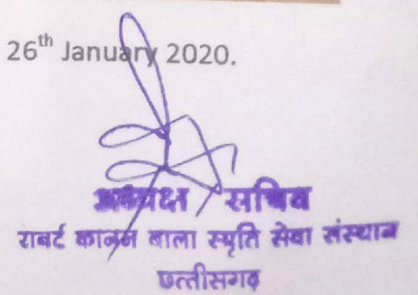 26th January 2020.
अध्यक्ष / सचिव
राबर्ट कानन बाला स्मृति सेवा संस्थान
छत्तीसगढ़